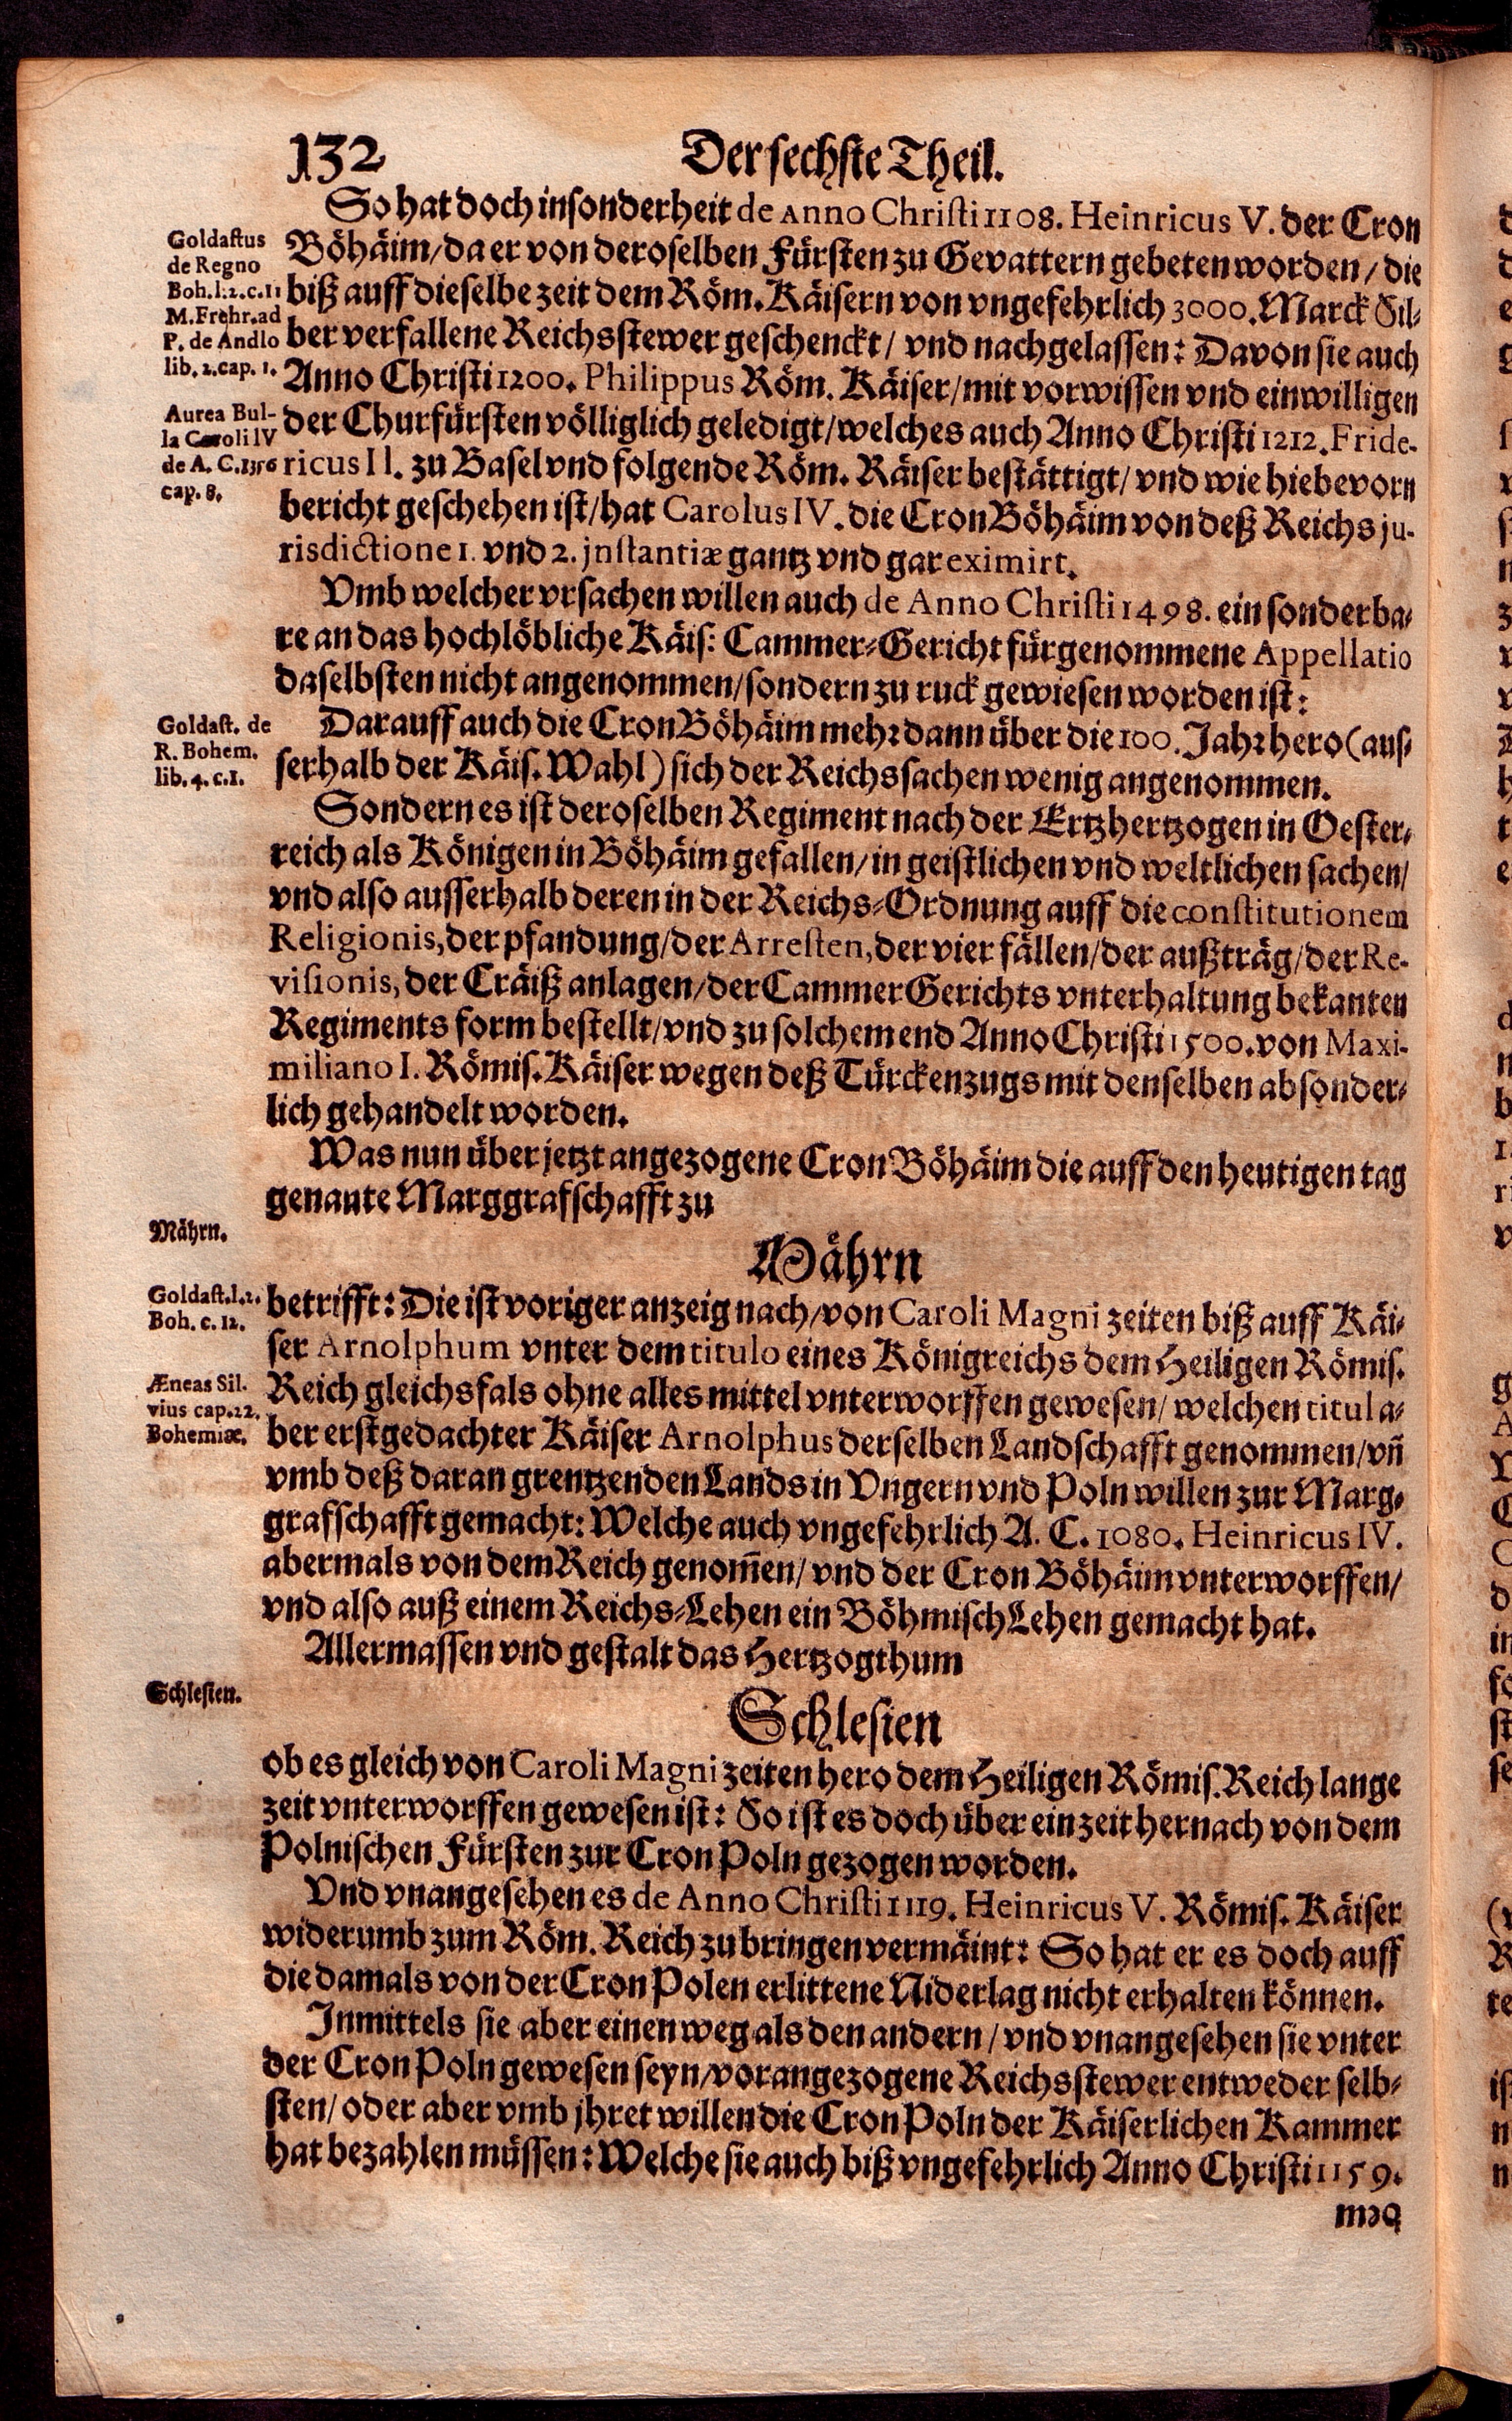 132
Der sechste Theil.
So hat doch insonderheit de Anno Christi 1108. Heinricus V. der Cron
Goldastus
de Regno
Boh. l. 2. c. 11
M. Frehr. ad
P. de Andlo
lib. 2. cap. 1.
Böhäim/ da er von deroselben Fürsten zu Gevattern gebeten worden/ die
biß auff dieselbe zeit dem Röm. Käisern von vngefehrlich 3000. Marck Sil-
ber verfallene Reichsstewer geschenckt/ vnd nachgelassen: Davon sie auch
Anno Christi 1200. Philippus Röm. Käiser/ mit vorwissen vnd einwilligen
Aurea Bul-
la Caroli IV
de A. C. 1356
cap. 8.
der Churfürsten völliglich geledigt/ welches auch Anno Christi 1212. Fride-
ricus II. zu Basel vnd folgende Röm. Käiser bestättigt/ vnd wie hiebevorn
bericht geschehen ist/ hat Carolus IV. die Cron Böhäim von deß Reichs ju-
risdictione 1. vnd 2. jnstantiæ gantz vnd gar eximirt.
Vmb welcher vrsachen willen auch de Anno Christi 1498. ein sonderba-
re an das hochlöbliche Käis: Cammer-Gericht fürgenommene Appellatio
daselbsten nicht angenommen/ sondern zu ruck gewiesen worden ist:
Goldast. de
R. Bohem.
lib. 4. c. 1.
Darauff auch die Cron Böhäim mehr dann über die 100. Jahr hero (aus-
serhalb der Käis. Wahl) sich der Reichssachen wenig angenommen.
Sondern es ist deroselben Regiment nach der Ertzhertzogen in Oester-
reich als Königen in Böhäim gefallen/ in geistlichen vnd weltlichen sachen/
vnd also ausserhalb deren in der Reichs-Ordnung auff die constitutionem
Religionis, der pfandung/ der Arresten, der vier fällen/ der außträg/ der Re-
visionis, der Cräiß anlagen/ der Cammer Gerichts vnterhaltung bekanten
Regiments form bestellt/ vnd zu solchem end Anno Christi 1500. von Maxi-
miliano I. Römis. Käiser wegen deß Türckenzugs mit denselben absonder-
lich gehandelt worden.
Was nun über jetzt angezogene Cron Böhäim die auff den heutigen tag
genante Marggrafschafft zu
Mährn.
Mährn
Goldast. l. 2.
Boh. c. 12.
betrifft: Die ist voriger anzeig nach/ von Caroli Magni zeiten biß auff Käi-
ser Arnolphum vnter dem titulo eines Königreichs dem Heiligen Römis.
Æneas Sil.
vius cap. 22.
Bohemiæ.
Reich gleichsfals ohne alles mittel vnterworffen gewesen/ welchen titul a-
ber erstgedachter Käiser Arnolphus derselben Landschafft genommen/ vñ
vmb deß daran grentzenden Lands in Vngern vnd Poln willen zur Marg-
grafschafft gemacht: Welche auch vngefehrlich A. C. 1080. Heinricus IV.
abermals von dem Reich genom̃en/ vnd der Cron Böhäim vnterworffen/
vnd also auß einem Reichs-Lehen ein Böhmisch Lehen gemacht hat.
Allermassen vnd gestalt das Hertzogthum
Schlesien.
Schlesien
ob es gleich von Caroli Magni zeiten hero dem Heiligen Römis. Reich lange
zeit vnterworffen gewesen ist: So ist es doch über ein zeit hernach von dem
Polnischen Fürsten zur Cron Poln gezogen worden.
Vnd vnangesehen es de Anno Christi 1119. Heinricus V. Römis. Käiser
widerumb zum Röm. Reich zu bringen vermäint: So hat er es doch auff
die damals von der Cron Polen erlittene Niderlag nicht erhalten können.
Inmittels sie aber einen weg als den andern/ vnd vnangesehen sie vnter
der Cron Poln gewesen seyn/ vorangezogene Reichsstewer entweder selb-
sten/ oder aber vmb jhret willen die Cron Poln der Käiserlichen Kammer
hat bezahlen müssen: Welche sie auch biß vngefehrlich Anno Christi 1159.
dem